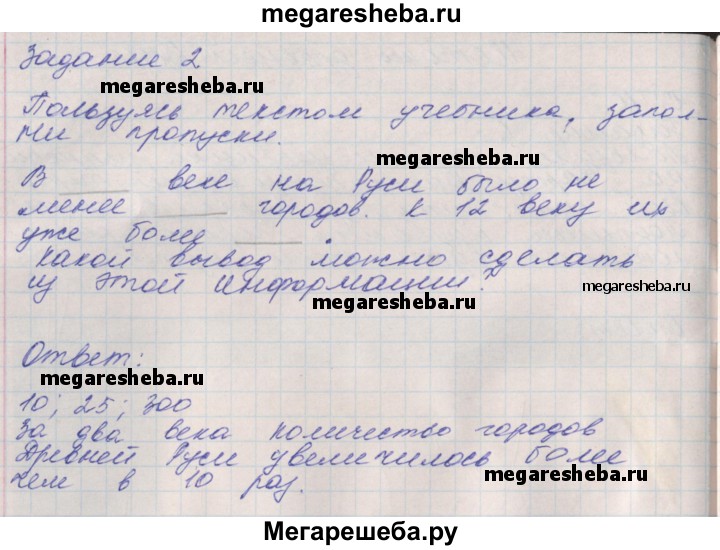 megaresheba.ru
Задание 2
megaresheba.ru
Пользуясь текстом учебника, запол-
ни пропуски.
megaresheba.ru
В ____ веке на Руси было не
менее ____ городов. К 12 веку их
уже более ____.
Какой вывод можно сделать
из этой информации?
megaresheba.ru
megaresheba.ru
Ответ:
megaresheba.ru
10; 25; 300
За два века количество городов
Древней Руси увеличилось более
megaresheba.ru
чем в 10 раз.
Мегарешеба.ру